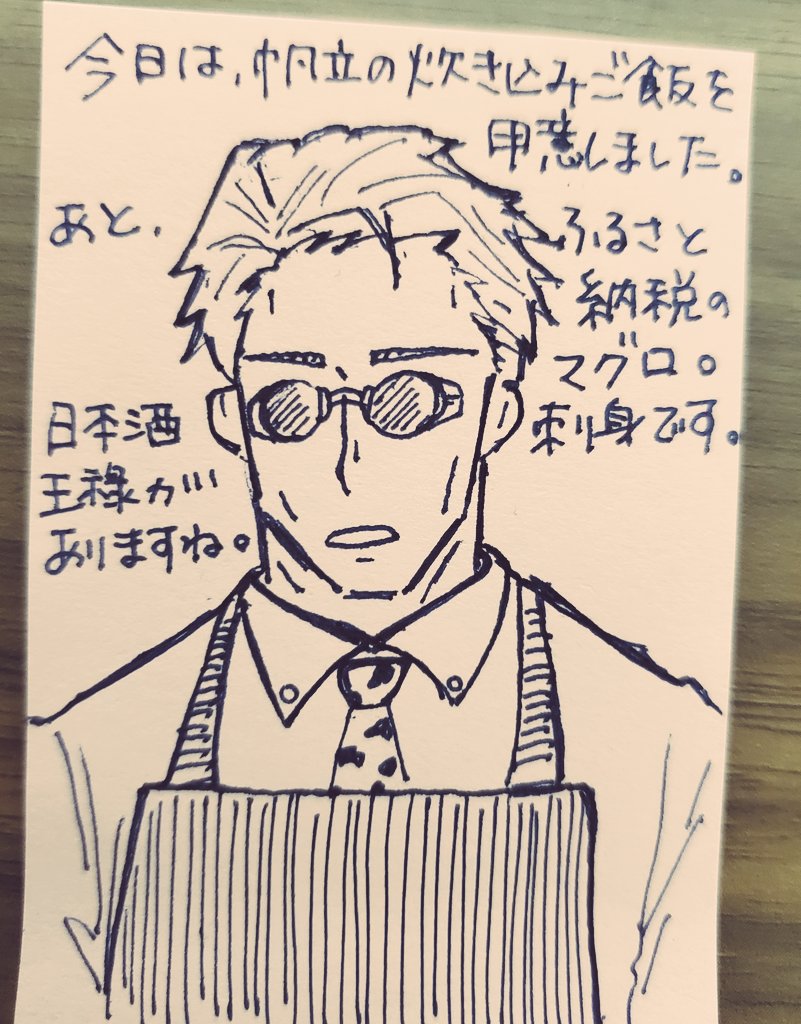 今日は、帆立の炊き込みご飯を
用意しました。
あと、
ふるさと
納税の
マグロ。
刺身です。
日本酒
王祿が
ありますね。